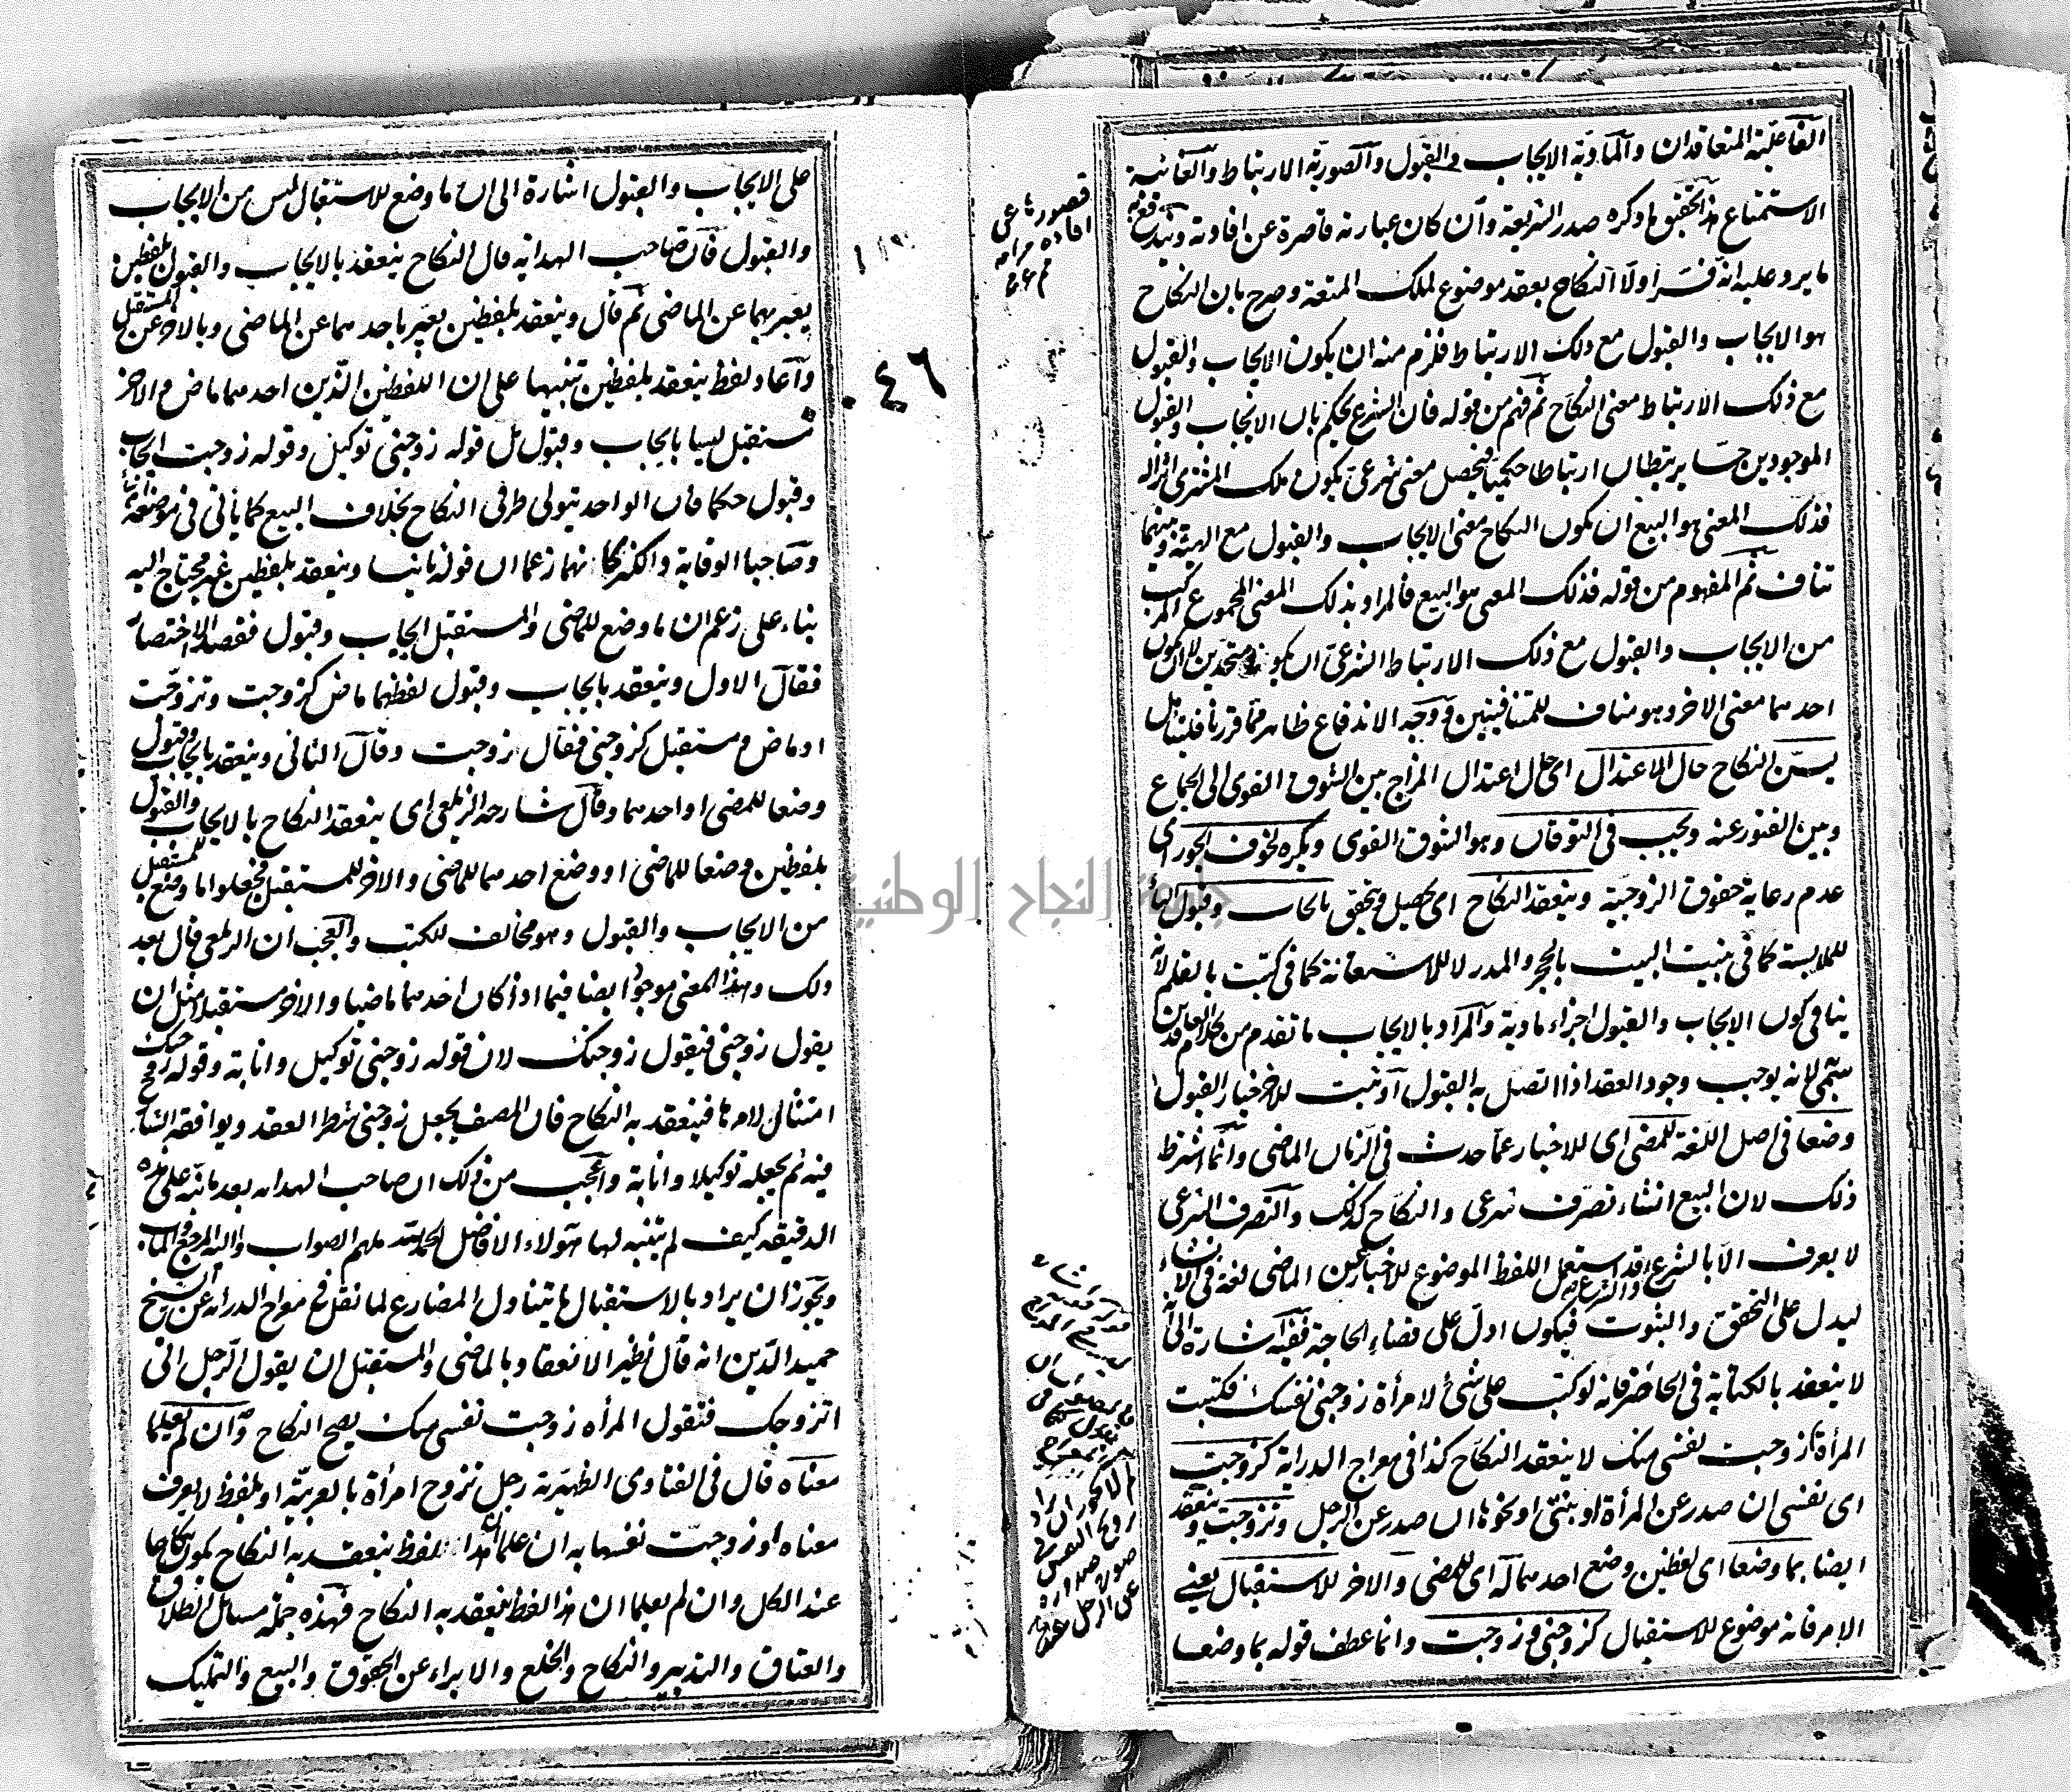 الفاعلية المتعاقدان والمادية الايجاب والقبول والصورية الارتباط والغائية
الاستمتاع هذا تحقيق ما ذكره صدر الشريعة وان كان عبارته قاصرة عن افادته ويندفع به
ما يرد عليه انه فسر اولا النكاح بعقد موضوع لملك المتعة وصرح بان النكاح
هو الايجاب والقبول مع ذلك الارتباط فلزم منه ان يكون الايجاب والقبول
مع ذلك الارتباط معنى النكاح ثم فهم من قوله فان الشرع يحكم بان الايجاب والقبول
الموجودين حسا يرتبطان ارتباطا حكميا فيحصل معنى شرعي يكون ملك المشتري اثرا له
فذلك المعنى هو البيع ان يكون النكاح معنى الايجاب والقبول مع الهيئة وبينهما
تناف ثم المفهوم من قوله فذلك المعنى هو البيع فالمراد بذلك المعنى المجموع المركب
من الايجاب والقبول مع ذلك الارتباط الشرعي ان يكونا متحدين لا ان يكون
احدهما معنى الاخر وهو مناف للمتنافيين ووجه الاندفاع ظاهر مما قررنا فليتامل
يسن النكاح حال الاعتدال اى حال اعتدال المزاج بين الشوق القوى الى الجماع
وبين الفتور عنه ويجب فى التوقان وهو الشوق القوى ويكره لخوف الجور اى
عدم رعاية حقوق الزوجية وينعقد النكاح اى يحصل ويتحقق بايجاب وقبول الباء
للملابسة كما فى بنيت البيت بالحجر والمدر لا للاستعانة كما فى كتبت بالقلم لانه
ينافى كون الايجاب والقبول اجزاء مادية والمراد بالايجاب ما تقدم من كلام العاقدين
سمى به لانه يوجب وجود العقد اذا اتصل به القبول او يثبت للاخر خيار القبول
وضعا فى اصل اللغة للمضى اى للاخبار عما حدث فى الزمان الماضى وانما اشترط
ذلك لان البيع انشاء تصرف شرعى والنكاح كذلك والتصرف الشرعى
لا يعرف الا بالشرع والشرع قد استعمل اللفظ الموضوع للاخبار عن الماضى لغة فى الانشاء
ليدل على التحقق والثبوت فيكون ادل على قضاء الحاجة ففيه اشارة الى انه
لا ينعقد بالكتابة فى الحاضر فانه لو كتب على شئ لامرأة زوجينى نفسك فكتبت
المرأة زوجت نفسى منك لا ينعقد النكاح كذا فى معراج الدراية كزوجت
اى نفسى ان صدر عن المرأة او بنتى او نحوها ان صدر عن الرجل وتزوجت وينعقد
ايضا بما وضعا اى لفظين وضع احدهما له اى للمضى والاخر للاستقبال يعنى
الامر فانه موضوع للاستقبال كزوجنى وزوجت وانما عطف قوله بما وضعا
قصور
افاده مرامه
٠٤٦
على الايجاب والقبول اشارة الى ان ما وضع للاستقبال ليس من الايجاب
والقبول فان صاحب الهداية قال النكاح ينعقد بالايجاب والقبول بلفظين
يعبر بهما عن الماضى ثم قال وينعقد بلفظين يعبر باحدهما عن الماضى وبالاخر عن المستقبل
واعاد لفظ ينعقد بلفظين تنبيها على ان اللفظين الذين احدهما ماض والاخر
مستقبل ليسا بايجاب وقبول بل قوله زوجنى توكيل وقوله زوجت ايجاب
وقبول حكما فان الواحد يتولى طرفى النكاح بخلاف البيع كما ياتى فى موضعه
وصاحبا الوقاية والكنز كانهما زعما ان قوله ثانيا وينعقد بلفظين غير محتاج اليه
بناء على زعم ان ما وضع للماضى والمستقبل ايجاب وقبول فقصدا الاختصار
فقال الاول وينعقد بايجاب وقبول لفظهما ماض كزوجت وتزوجت
او ماض ومستقبل كزوجنى فقال زوجت وقال الثانى وينعقد بايجاب وقبول
وضعا للمضى او احدهما وقال شارحه الزيلعى اى ينعقد النكاح بالايجاب والقبول
بلفظين وضعا للماضى او وضع احدهما للماضى والاخر للمستقبل فجعلوا ما وضع للمستقبل
من الايجاب والقبول وهو مخالف للكتب والعجب ان الزيلعى قال بعد
ذلك وهذا المعنى موجود ايضا فيما اذا كان احدهما ماضيا والاخر مستقبلا مثل ان
يقول زوجنى فيقول زوجتك لان قوله زوجنى توكيل وانابة وقوله زوجتك
امتثال لامره فينعقد به النكاح فان المصنف يجعل زوجنى شطر العقد ويوافقه الشارح
فيه ثم يجعله توكيلا وانابة واعجب من ذلك ان صاحب الهداية بعد ما نبه على هذه
الدقيقة كيف لم يتنبه لها هؤلاء الافاضل الحمد لله ملهم الصواب واليه المرجع والمآب
ويجوز ان يراد بالاستقبال ما يتناول المضارع لما نقل فى معراج الدراية عن الشيخ
حميد الدين انه قال نظير الانعقاد بالماضى والمستقبل ان يقول الرجل انى
اتزوجك فتقول المرأة زوجت نفسى منك يصح النكاح وان لم يعلما
معناه قال فى الفتاوى الظهيرية رجل تزوج امرأة بالعربية او بلفظ لا يعرف
معناه او زوجت نفسها به ان علما ان هذا اللفظ ينعقد به النكاح يكون نكاحا
عند الكل وان لم يعلما ان هذا لفظ ينعقد به النكاح فهذه جملة مسائل الطلاق
والعتاق والتدبير والنكاح والخلع والابراء عن الحقوق والبيع والتمليك
جامعة النجاح الوطنية